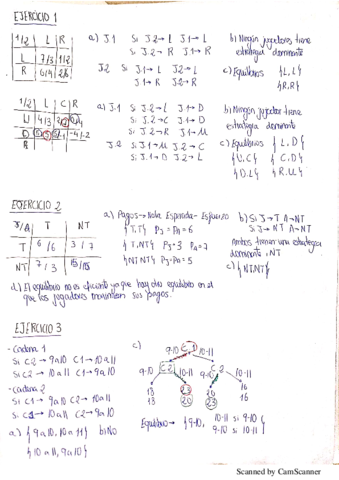 EJERCICIO 1
1/2 | L | R
L | 7/3 | 1/2
R | 6/4 | 2/6
a) J.1 Si J.2→ L J.1→ L
Si J.2→ R J.1→ R
J.2 Si J.1→ L J.2→ L
J.1→ R J.2→ R
b) Ningún jugadores tiene
estrategia dominante
c) Equilibrios {L,L}
{R,R}
1/2 | L | C | R
a) J.1 Si J.2→ L J.1→ D
Si J.2→ C J.1→ D
Si J.2→ R J.1→ U
J.2 Si J.1→ U J.2→ C
Si J.1→ D J.2→ L
b) Ningún jugador tiene
estrategia dominante
c) Equilibrios
EJERCICIO 2
J/A | T | NT
T | 6/6 | 3/7
NT | 7/3 |
a) Pagos → Nota Esperada - Esfuerzo
{T,T} PJ = PA = 6
{T,NT} PJ=3 PA=7
{NT,NT} PJ=PA=5
b) Si J→T A→NT
Si J→NT A→NT
Ambos tienen una estrategia
dominante, NT
c) {NT,NT}
d) El equilibrio no es eficiente ya que hay otro equilibrio en el
que los jugadores maximizan sus pagos.
EJERCICIO 3
- Cadena 1
Si C2→ 9a10 C1→ 10a11
Si C2→ 10a11 C1→ 9a10
- Cadena 2
Si C1→ 9a10 C2→ 10a11
Si C1→ 10a11 C2→ 9a10
a) {9a10, 10a11} b) NO
{10a11, 9a10}
c)
9-10 C.1 10-11
C.2 C.2
9-10 10-11 9-10 10-11
18 23 20 16
18 20 23 16
Equilibrio → {9-10, 10-11 si 9-10
9-10 si 10-11}
Scanned by CamScanner